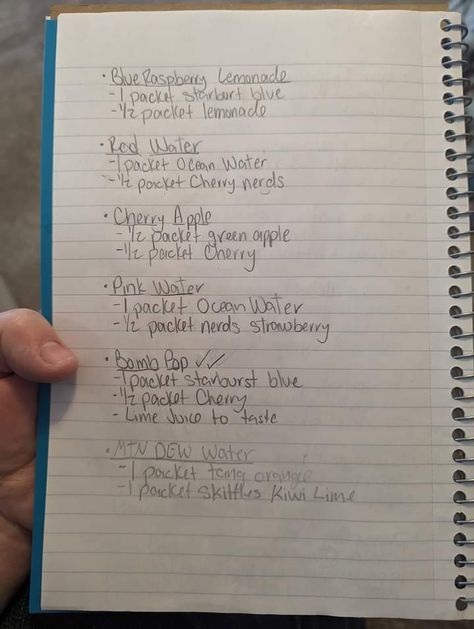 · Blue Raspberry Lemonade
- 1 packet starburt blue
- 1/2 packet lemonade
· Red Water
- 1 packet Ocean Water
- 1/2 packet Cherry nerds
· Cherry Apple
- 1/2 packet green apple
- 1/2 packet Cherry
· Pink Water
- 1 packet Ocean Water
- 1/2 packet nerds strawberry
· Bomb Pop ✓✓
- 1 packet starburst blue
- 1/2 packet Cherry
- Lime Juice to taste
· MTN DEW Water
- 1 packet tang orange
- 1 packet Skittles Kiwi Lime